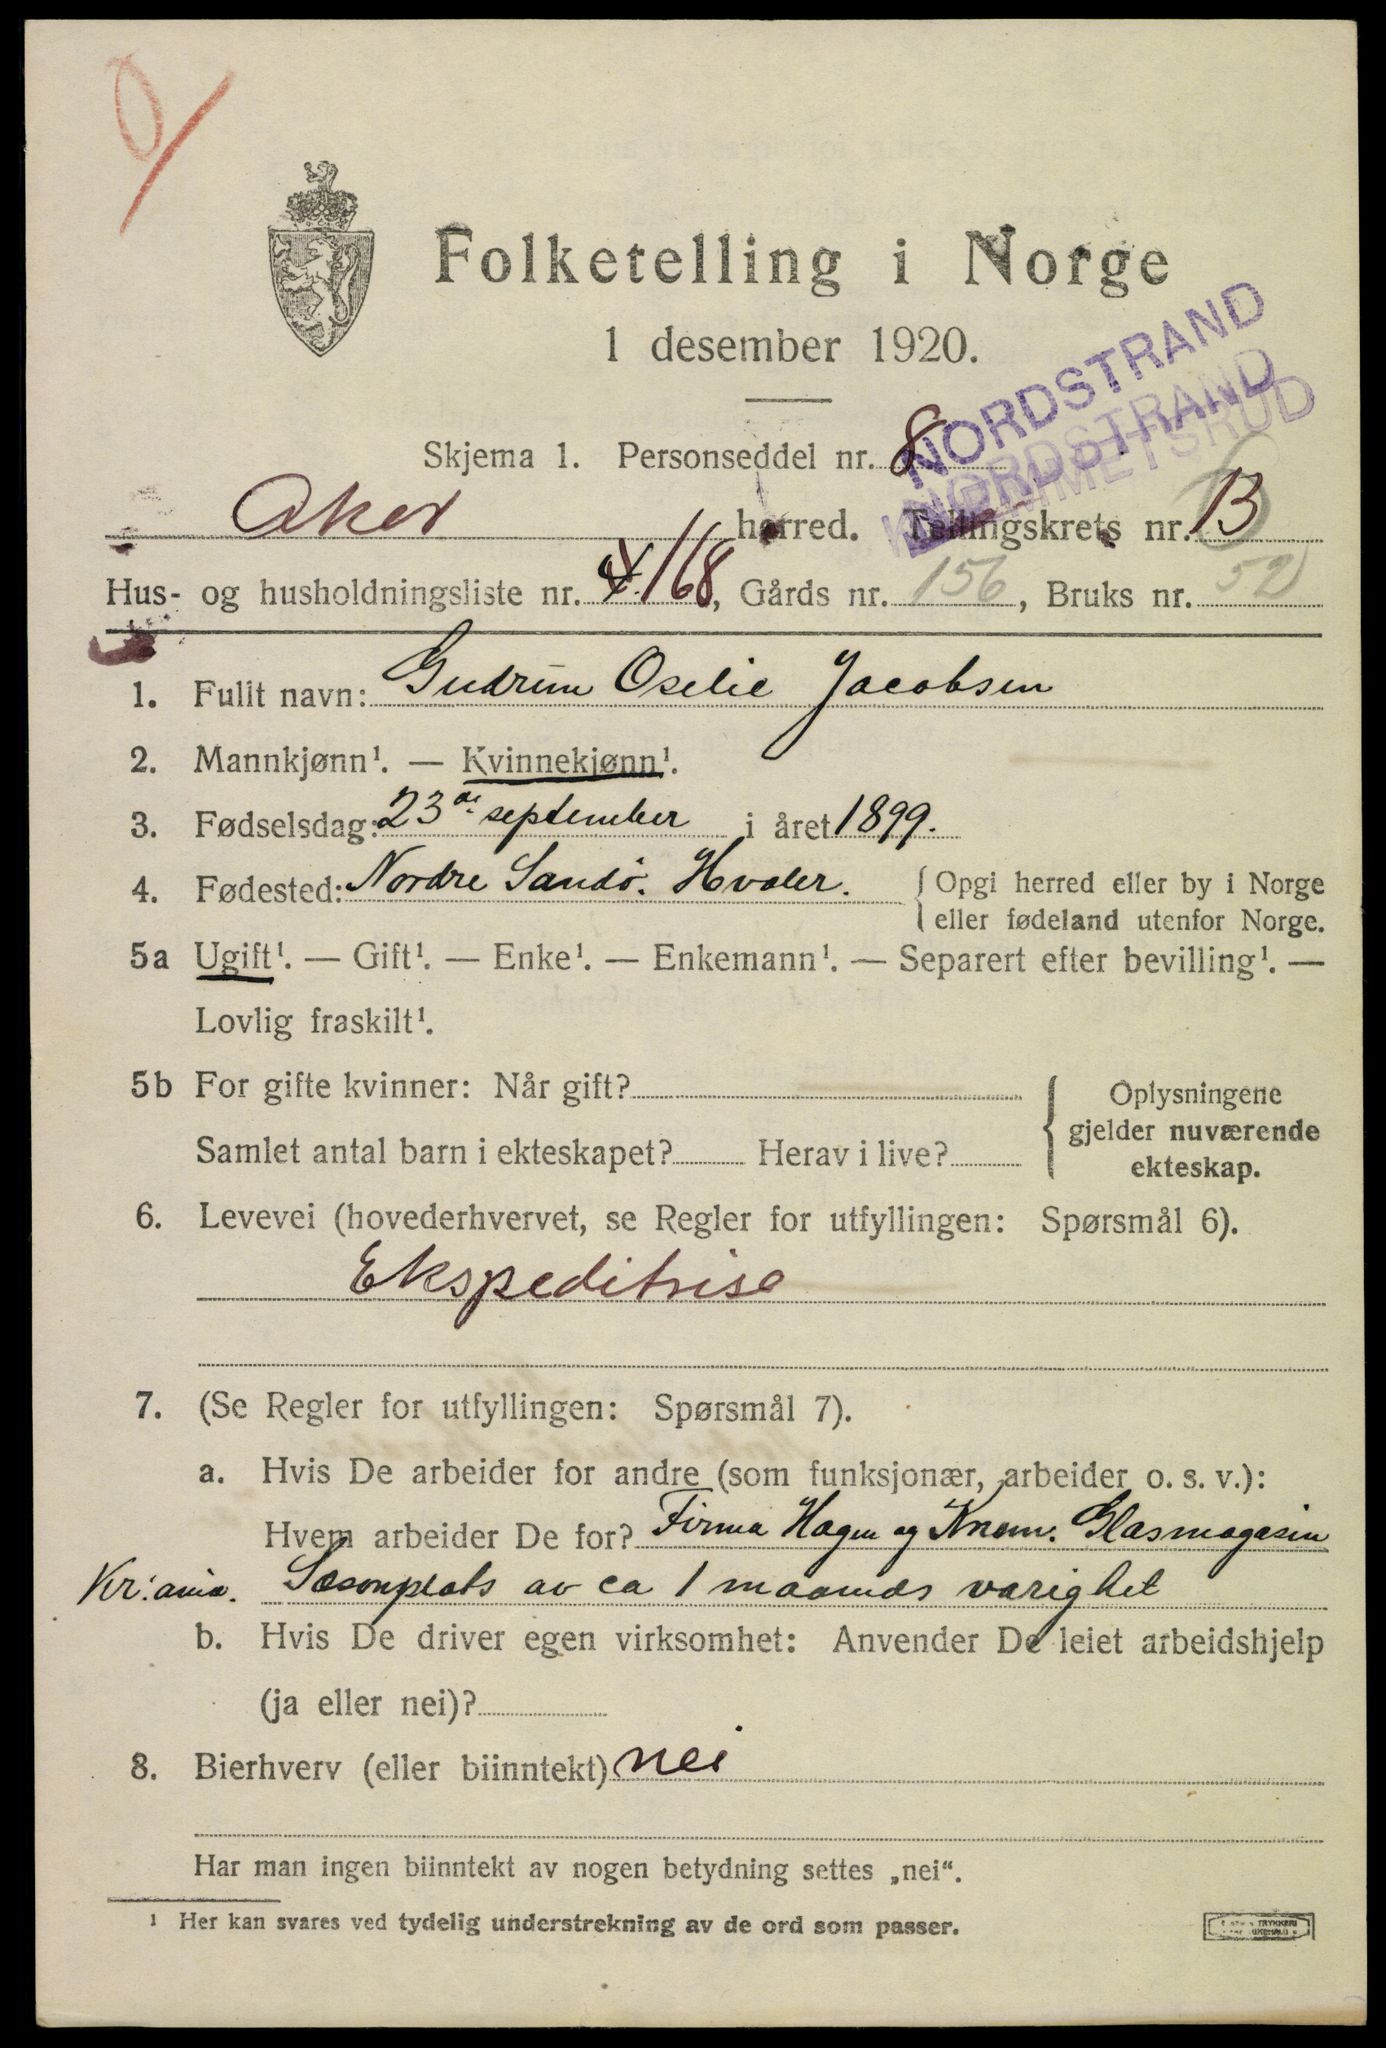 Folketelling i Norge
1 desember 1920.
NORDSTRAND
NORDSTRAND
Skjema 1. Personseddel nr. 8
Aker herred. Tellingskrets nr. 13
Hus- og husholdningsliste nr. 168, Gårds nr. 156, Bruks nr. 52
1. Fullt navn: Gudrun Oselie Jacobsen
2. Mannkjønn¹. — Kvinnekjønn¹.
3. Fødselsdag: 23de september i året 1899.
4. Fødested: Nordre Sandö. Hvaler. { Opgi herred eller by i Norge
eller fødeland utenfor Norge.
5a Ugift¹. — Gift¹. — Enke¹. — Enkemann¹. — Separert efter bevilling¹. —
Lovlig fraskilt¹.
5b For gifte kvinner: Når gift?
Samlet antal barn i ekteskapet? Herav i live?
{ Oplysningene
gjelder nuværende
ekteskap.
6. Levevei (hovederhvervet, se Regler for utfyllingen: Spørsmål 6).
Ekspeditrise
7. (Se Regler for utfyllingen: Spørsmål 7).
a. Hvis De arbeider for andre (som funksjonær, arbeider o. s. v.):
Hvem arbeider De for? Firma Hagen og Glasmagasin
Kr:ania. Sæsonplats av ca 1 maaneds varighet
b. Hvis De driver egen virksomhet: Anvender De leiet arbeidshjelp
(ja eller nei)?
8. Bierhverv (eller biinntekt) nei
Har man ingen biinntekt av nogen betydning settes „nei“.
¹ Her kan svares ved tydelig understrekning av de ord som passer.